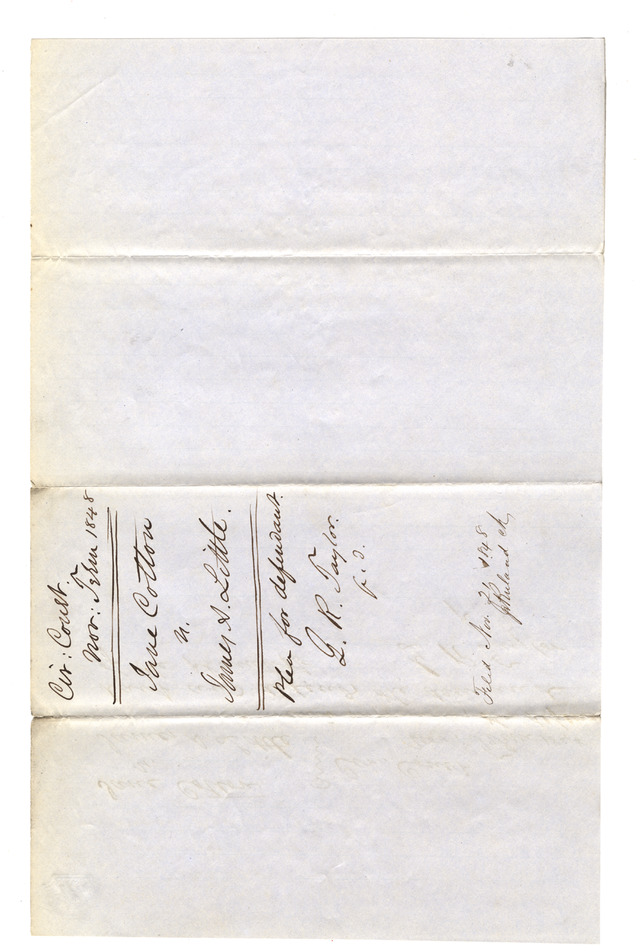 Cir: Court.
Nov: Term 1848
Jane Cotton
v.
James A. Little.
Plea for defendant.
L. R. Taylor.
p. d.
Filed Nov. 1848
J Ruland Ck